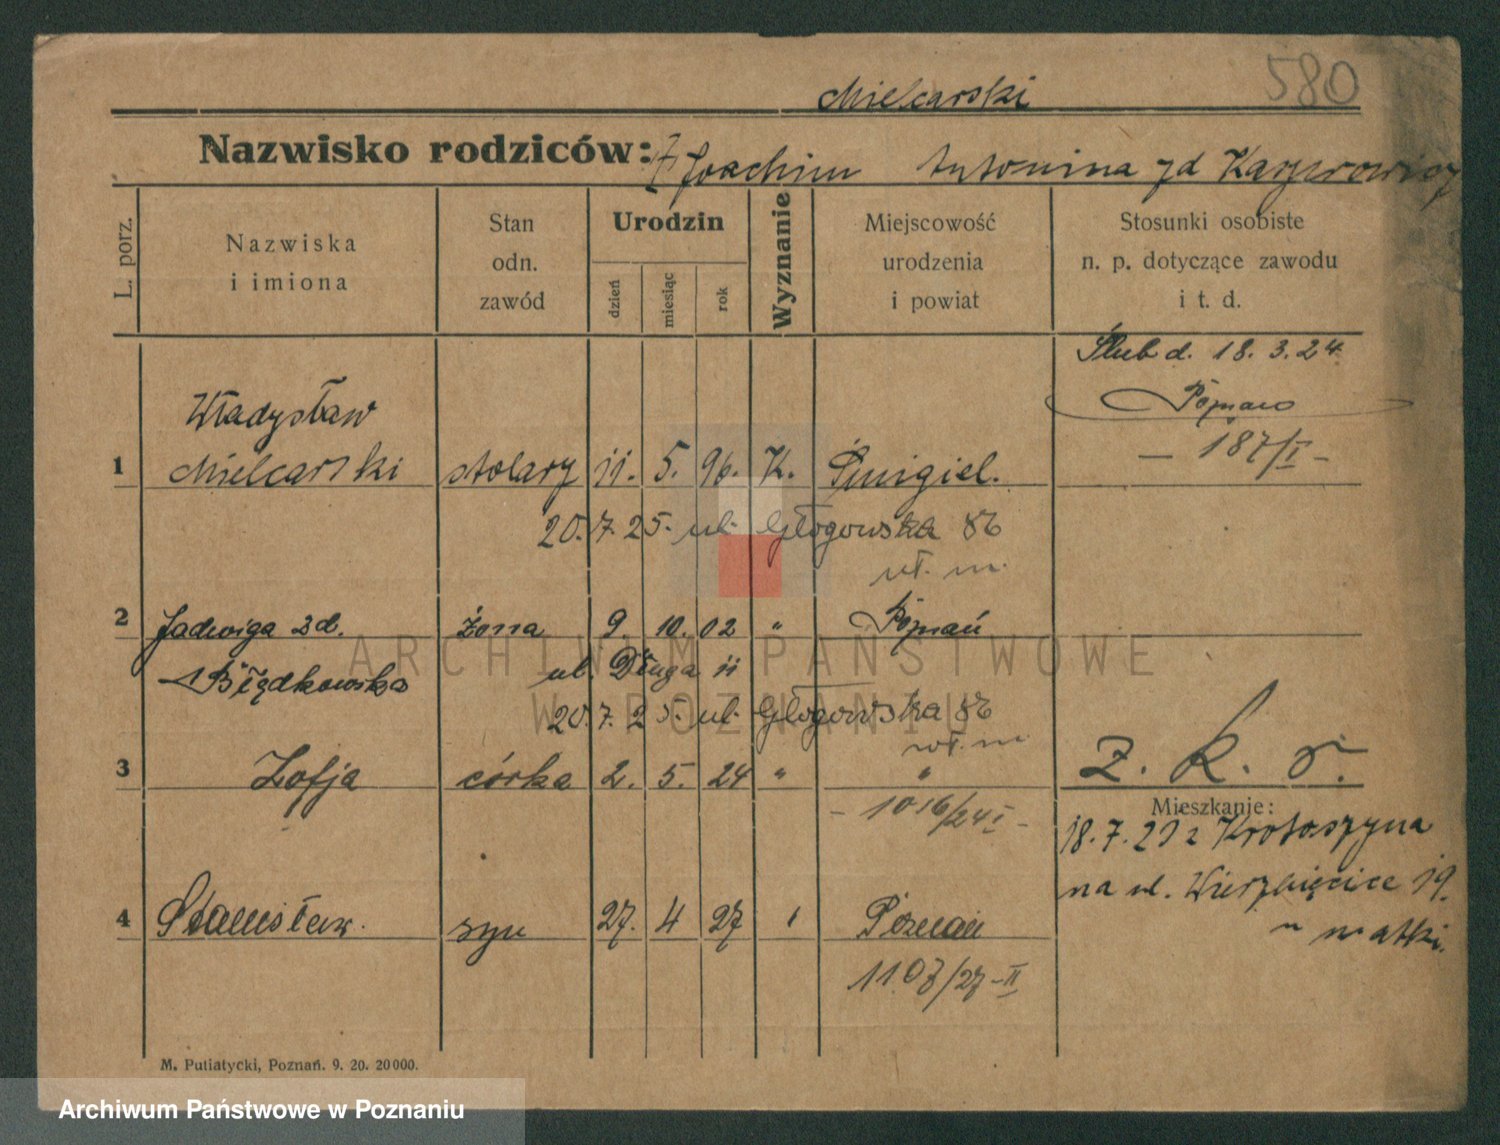 580
Mielcarski
Nazwisko rodziców: Joachim Antonina zd Kasprowicz
L. porz.
Nazwiska
i imiona
Stan
odn.
zawód
Urodzin
dzień
miesiąc
rok
Wyznanie
Miejscowość
urodzenia
i powiat
Stosunki osobiste
n. p. dotyczące zawodu
i t. d.
Ślub d. 18. 3. 24
Poznań
- 187/I -
Władysław
1 Mielcarski stolarz 11. 5. 96. K. Śmigiel.
20. 7. 25. ul. Głogowska 86
wł. m.
2 Jadwiga zd. żona 9. 10. 02 " Poznań
Błądkowska ul. Długa 11
20. 7. 25. ul. Głogowska 86
wł. m.
3 Zofja córka 2. 5. 24 " "
- 1016/24 I -
Z. K. r.
Mieszkanie:
18. 7. 29 z Krotoszyna
na ul. Wierzbięcice 19.
u matki.
4 Stanisław. syn 27. 4 27 Poznań
1107/27 - II
M. Putiatycki, Poznań. 9. 20. 20000.
ARCHIWUM PAŃSTWOWE
W POZNANIU
Archiwum Państwowe w Poznaniu